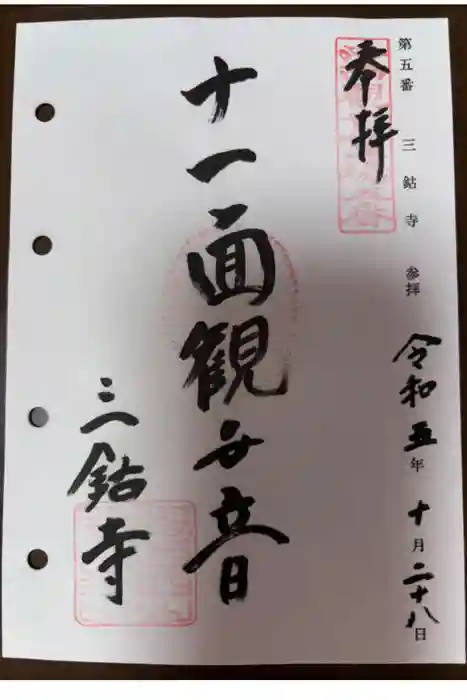 第五番 三鈷寺 参拝
令和五年十月二十八日
奉拝
十一面観世音
三鈷寺